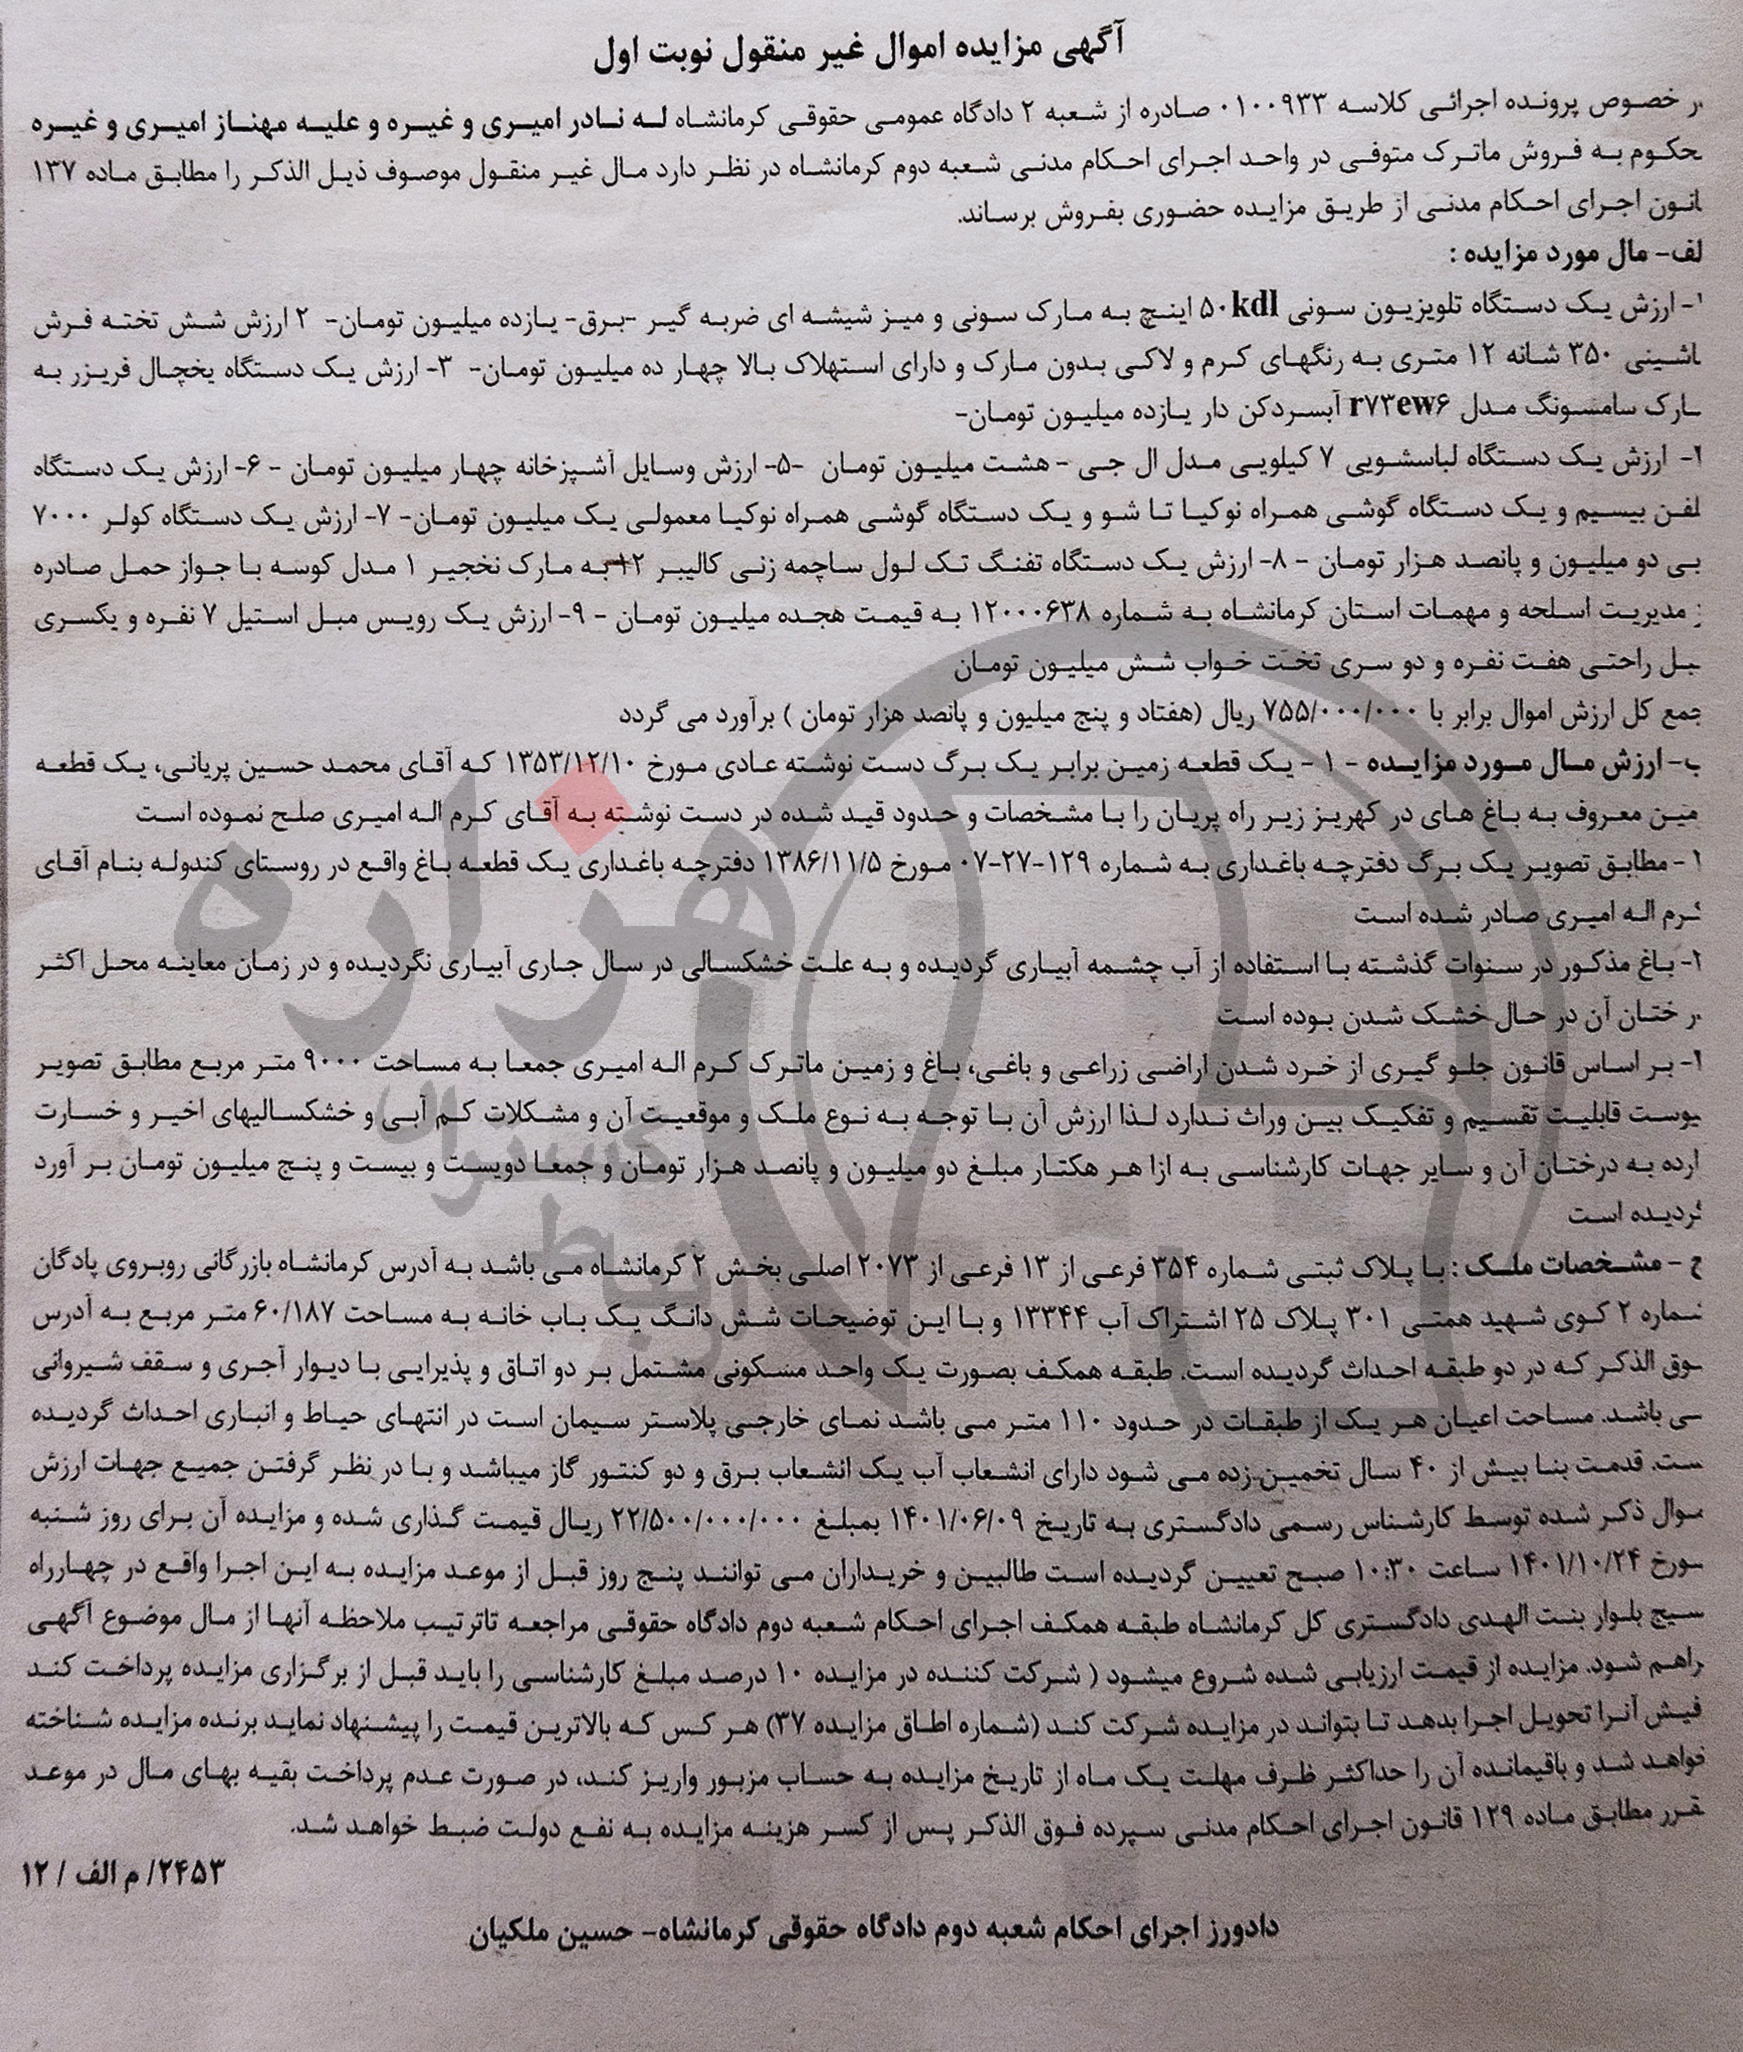 آگهی مزایده اموال غیر منقول نوبت اول
ر خصوص پرونده اجرائی کلاسه ۰۱۰۰۹۳۳ صادره از شعبه ۲ دادگاه عمومی حقوقی کرمانشاه له نادر امیری و غیره و علیه مهناز امیری و غیره
حکوم به فروش ماترک متوفی در واحد اجرای احکام مدنی شعبه دوم کرمانشاه در نظر دارد مال غیر منقول موصوف ذیل الذکر را مطابق ماده ۱۳۷
انون اجرای احکام مدنی از طریق مزایده حضوری بفروش برساند.
لف- مال مورد مزایده :
۱- ارزش یک دستگاه تلویزیون سونی ۵۰kdl اینچ به مارک سونی و میز شیشه ای ضربه گیر -برق- یازده میلیون تومان- ۲ ارزش شش تخته فرش
اشینی ۳۵۰ شانه ۱۲ متری به رنگهای کرم و لاکی بدون مارک و دارای استهلاک بالا چهار ده میلیون تومان- ۳- ارزش یک دستگاه یخچال فریزر به
ارک سامسونگ مدل r۷۳ew۶ آبسردکن دار یازده میلیون تومان-
- ارزش یک دستگاه لباسشویی ۷ کیلویی مدل ال جی - هشت میلیون تومان -۵- ارزش وسایل آشپزخانه چهار میلیون تومان - ۶- ارزش یک دستگاه
لفن بیسیم و یک دستگاه گوشی همراه نوکیا تا شو و یک دستگاه گوشی همراه نوکیا معمولی یک میلیون تومان- ۷- ارزش یک دستگاه کولر ۷۰۰۰
بی دو میلیون و پانصد هزار تومان - ۸- ارزش یک دستگاه تفنگ تک لول ساچمه زنی کالیبر ۱۲ به مارک نخجیر ۱ مدل کوسه با جواز حمل صادره
ز مدیریت اسلحه و مهمات استان کرمانشاه به شماره ۱۲۰۰۰۶۳۸ به قیمت هجده میلیون تومان - ۹- ارزش یک رویس مبل استیل ۷ نفره و یکسری
بل راحتی هفت نفره و دو سری تخت خواب شش میلیون تومان
جمع کل ارزش اموال برابر با ۷۵۵/۰۰۰/۰۰۰ ریال (هفتاد و پنج میلیون و پانصد هزار تومان ) برآورد می گردد
ب- ارزش مال مورد مزایده - ۱ - یک قطعه زمین برابر یک برگ دست نوشته عادی مورخ ۱۳۵۳/۱۲/۱۰ که آقای محمد حسین پریانی، یک قطعه
مین معروف به باغ های در کهریز زیر راه پریان را با مشخصات و حدود قید شده در دست نوشته به آقای کرم اله امیری صلح نموده است
- مطابق تصویر یک برگ دفترچه باغداری به شماره ۱۲۹-۲۷-۰۷ مورخ ۱۳۸۶/۱۱/۵ دفترچه باغداری یک قطعه باغ واقع در روستای کندوله بنام آقای
کرم اله امیری صادر شده است
- باغ مذکور در سنوات گذشته با استفاده از آب چشمه آبیاری گردیده و به علت خشکسالی در سال جاری آبیاری نگردیده و در زمان معاینه محل اکثر
ر ختان آن در حال خشک شدن بوده است
- بر اساس قانون جلو گیری از خرد شدن اراضی زراعی و باغی، باغ و زمین ماترک کرم اله امیری جمعا به مساحت ۹۰۰۰ متر مربع مطابق تصویر
یوست قابلیت تقسیم و تفکیک بین وراث ندارد لذا ارزش آن با توجه به نوع ملک و موقعیت آن و مشکلات کم آبی و خشکسالیهای اخیر و خسارت
ارده به درختان آن و سایر جهات کارشناسی به ازا هر هکتار مبلغ دو میلیون و پانصد هزار تومان و جمعا دویست و بیست و پنج میلیون تومان بر آورد
گردیده است
ج - مشخصات ملک : با پلاک ثبتی شماره ۳۵۴ فرعی از ۱۳ فرعی از ۲۰۷۳ اصلی بخش ۲ کرمانشاه می باشد به آدرس کرمانشاه بازرگانی روبروی پادگان
شماره ۲ کوی شهید همتی ۳۰۱ پلاک ۲۵ اشتراک آب ۱۳۳۴۴ و با این توضیحات شش دانگ یک باب خانه به مساحت ۶۰/۱۸۷ متر مربع به آدرس
وق الذکر که در دو طبقه احداث گردیده است. طبقه همکف بصورت یک واحد مسکونی مشتمل بر دو اتاق و پذیرایی با دیوار آجری و سقف شیروانی
سی باشد. مساحت اعیان هر یک از طبقات در حدود ۱۱۰ متر می باشد نمای خارجی پلاستر سیمان است در انتهای حیاط و انباری احداث گردیده
ست. قدمت بنا بیش از ۴۰ سال تخمین زده می شود دارای انشعاب آب یک انشعاب برق و دو کنتور گاز میباشد و با در نظر گرفتن جمیع جهات ارزش
موال ذکر شده توسط کارشناس رسمی دادگستری به تاریخ ۱۴۰۱/۰۶/۰۹ بمبلغ ۲۲/۵۰۰/۰۰۰/۰۰۰ ریال قیمت گذاری شده و مزایده آن برای روز شنبه
ورخ ۱۴۰۱/۱۰/۲۴ ساعت ۱۰:۳۰ صبح تعیین گردیده است طالبین و خریداران می توانند پنج روز قبل از موعد مزایده به این اجرا واقع در چهارراه
سیج بلوار بنت الهدی دادگستری کل کرمانشاه طبقه همکف اجرای احکام شعبه دوم دادگاه حقوقی مراجعه تاترتیب ملاحظه آنها از مال موضوع آگهی
راهم شود. مزایده از قیمت ارزیابی شده شروع میشود ( شرکت کننده در مزایده ۱۰ درصد مبلغ کارشناسی را باید قبل از برگزاری مزایده پرداخت کند
فیش آنرا تحویل اجرا بدهد تا بتواند در مزایده شرکت کند (شماره اطاق مزایده ۳۷) هر کس که بالاترین قیمت را پیشنهاد نماید برنده مزایده شناخته
خواهد شد و باقیمانده آن را حداکثر ظرف مهلت یک ماه از تاریخ مزایده به حساب مزبور واریز کند، در صورت عدم پرداخت بقیه بهای مال در موعد
قرر مطابق ماده ۱۲۹ قانون اجرای احکام مدنی سپرده فوق الذکر پس از کسر هزینه مزایده به نفع دولت ضبط خواهد شد.
۲۴۵۳/ م الف / ۱۲
دادورز اجرای احکام شعبه دوم دادگاه حقوقی کرمانشاه- حسین ملکیان
هزاره